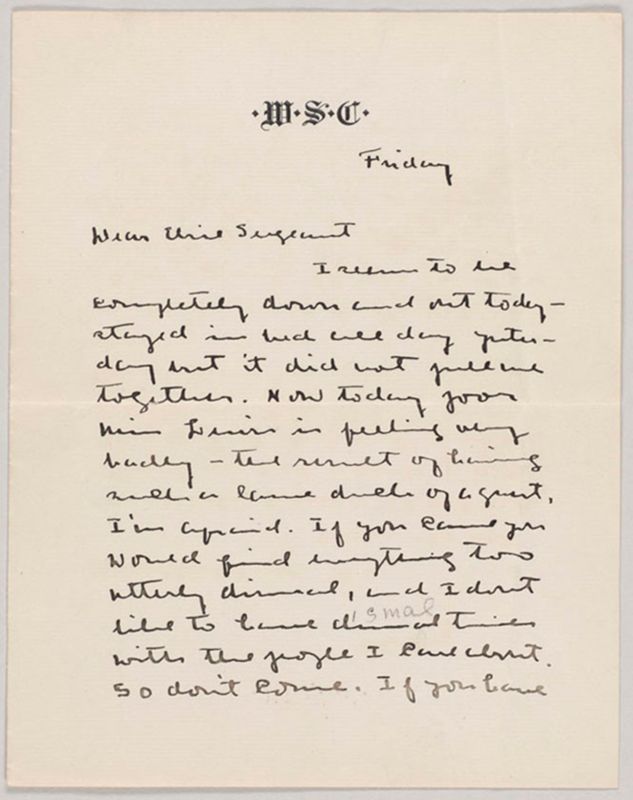 ·W·S·C·
Friday
Dear Elsie Sergeant
I seem to be
completely down and out today—
stayed in bed all day yester-
day but it did not pull me
together. Now today poor
Miss Lewis is feeling very
badly – the result of having
such a lame duck of a guest,
I'm afraid. If you came you
would find everything too
utterly dismal, and I don't
ismal
like to have dismal times
with the people I care about.
So don't come. If you have